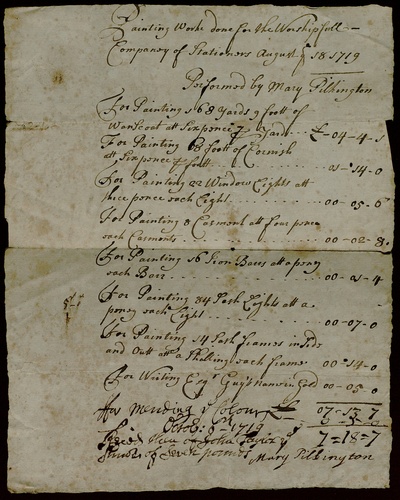 Painting Worke done for the Worshipfull
Company of Stationers August ye 18 1719
Performed by Mary Pilkington
For Painting 168 Yards 9 foott of
Wanscoat att Sixpence ye Yard .. £-04-4-1
For Painting 68 foott of Cornish
att Sixpence ye foott ... 01-14-0
For Painting 22 Window Eights att
three pence each Eight ... 00-05-6
For Painting 8 Casment att four pence
each Casments ... 00-02-8
For Painting 16 Iron Barrs att a peny
each Barr ... 00-01-4
For Painting 84 Sash Eights att a
peney each Eight ... 00-07-0
For Painting 14 Sash frames in Side
and Outt att a Shilling each frame 00-14-0
For Writing Esqr Guy's name in Gold 00-05-0
for Mending ye Colour £ 07-13-7
Octobr: 1719
7=18=7
Mary Pilkington